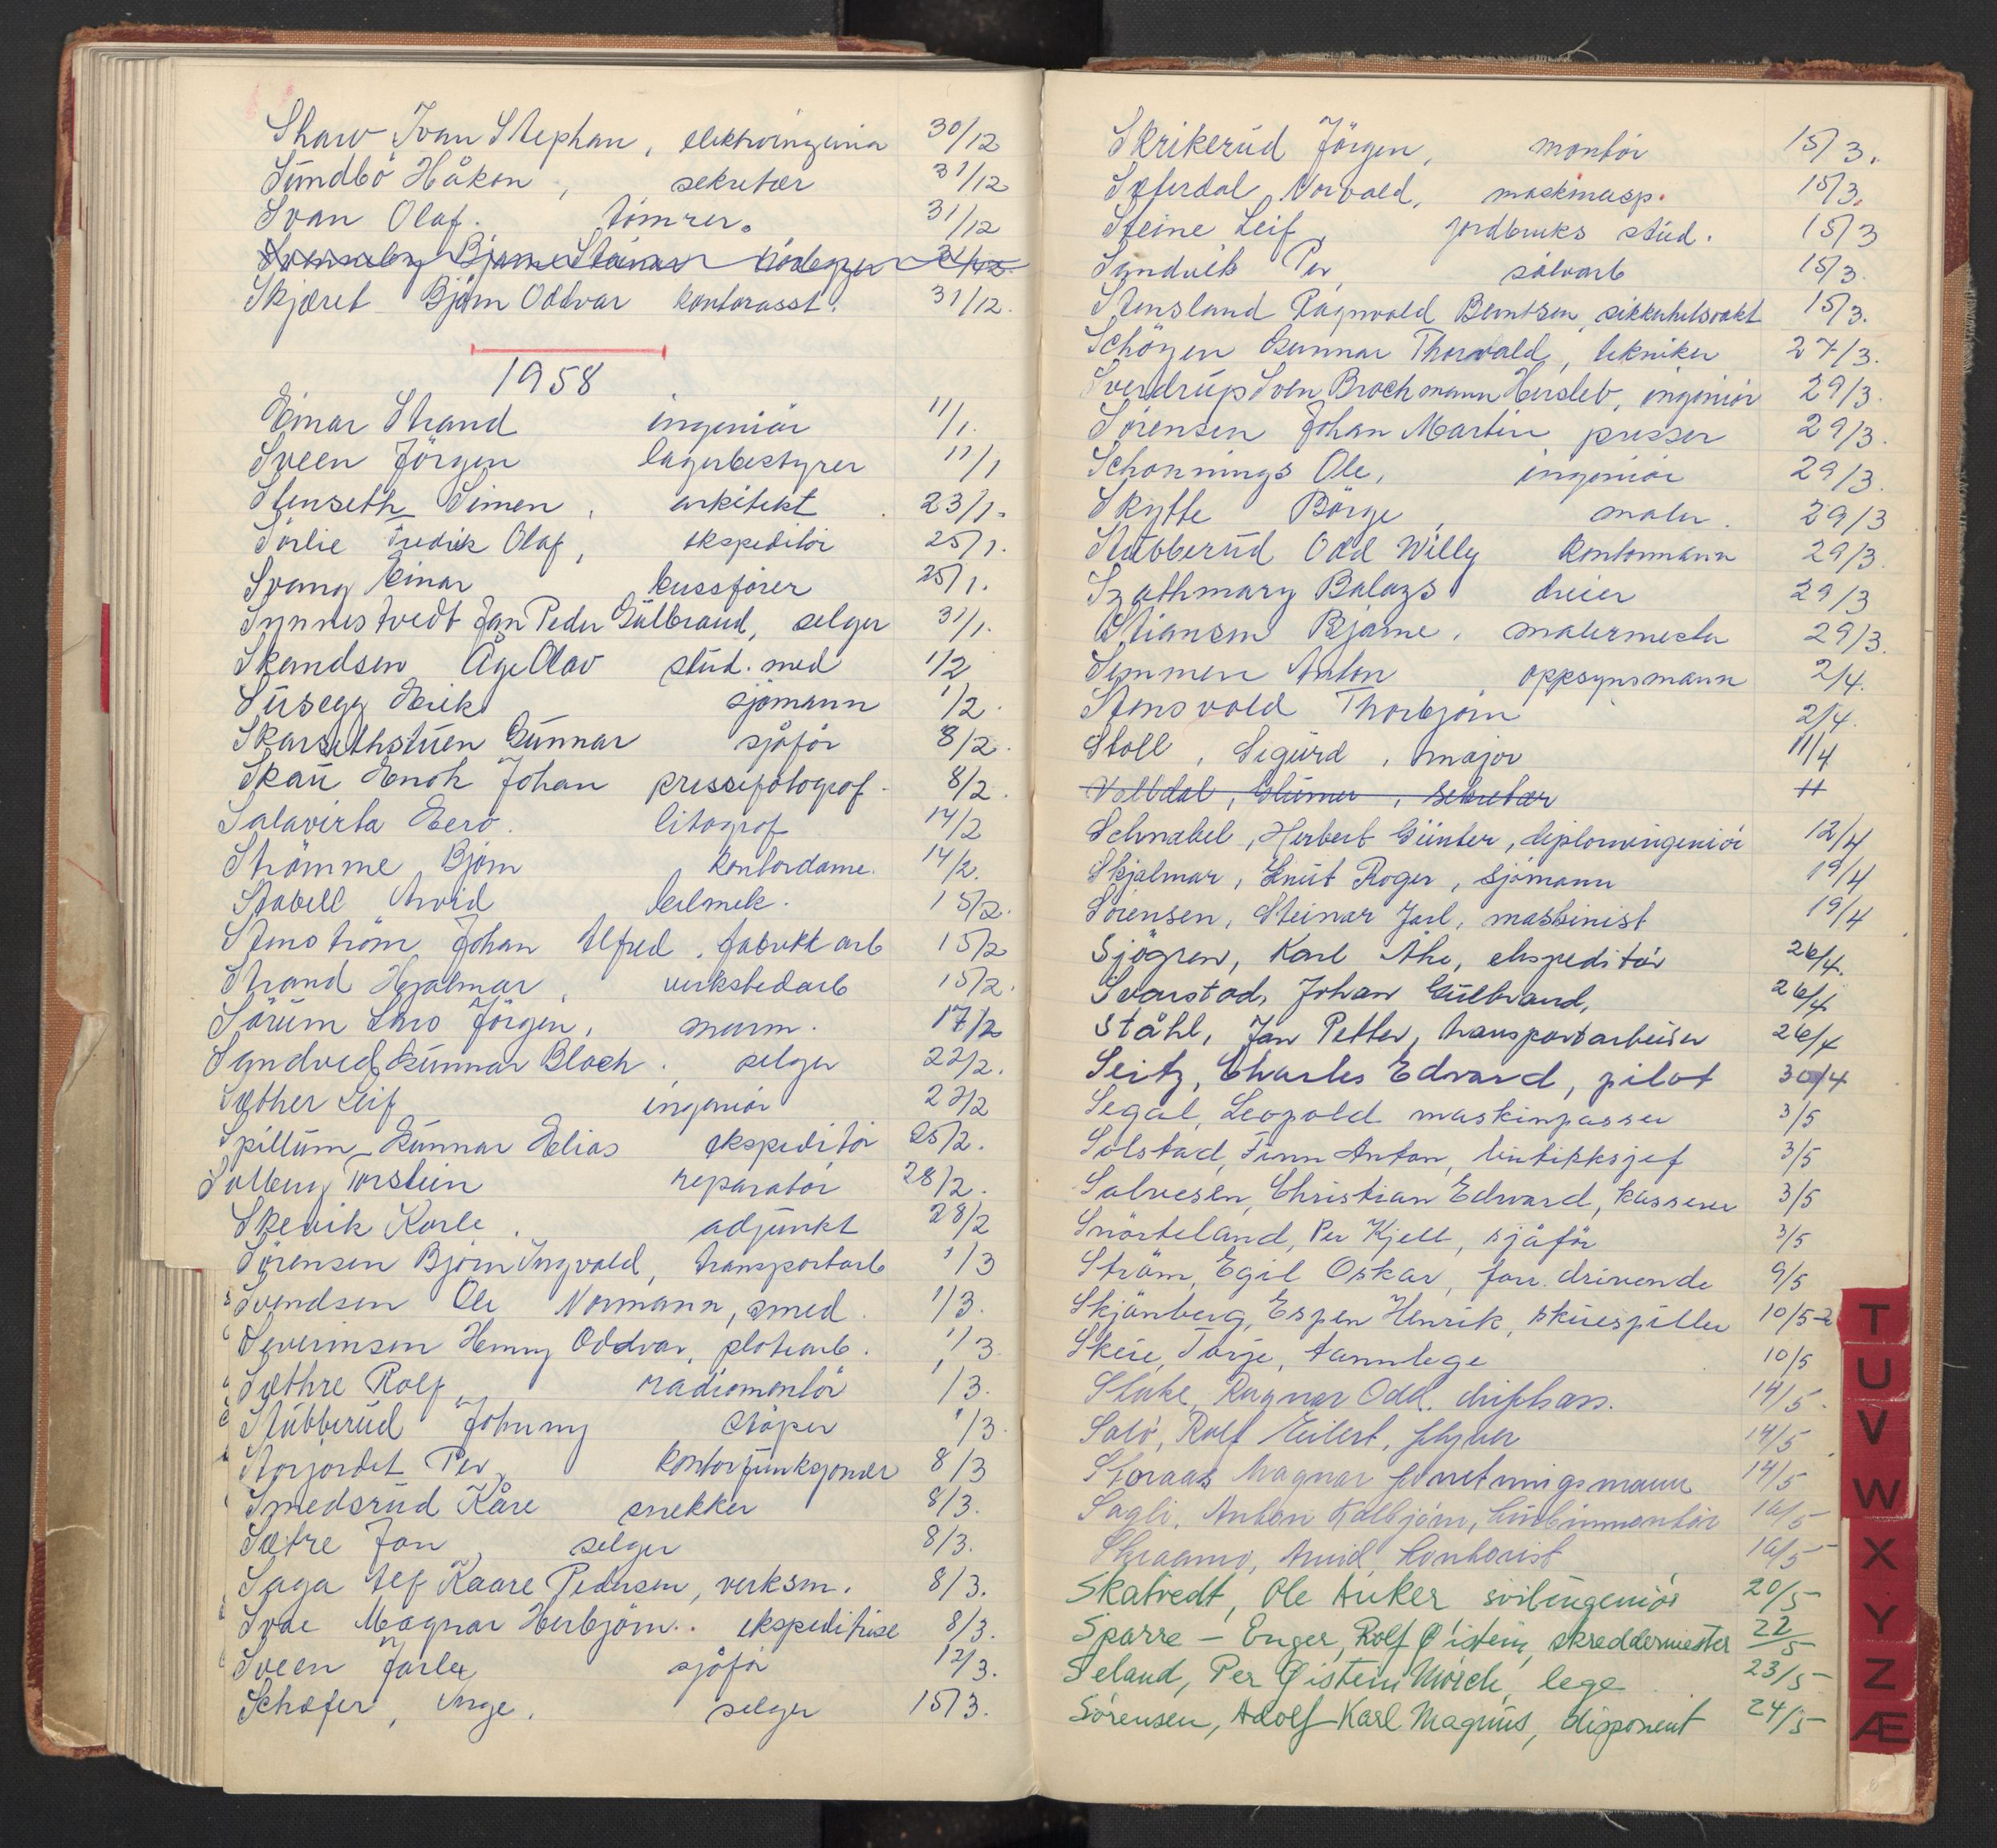 Shaw Ivan Stephan, elektroingeniør 30/12
Sundbö Håkon, sekretær 31/12
Svan Olaf. tömrer. 31/12
Bjarne 31/12
Skjæret Björn Oddvar kontorasst. 31/12.
1958
Einar Strand ingeniör 11/1.
Sveen Jörgen lagerbestyrer 11/1
Stenseth Simen, arkitekt. 23/1.
Sörlie Fredrik Olaf, ekspeditör 25/1.
Svang Einar bussförer 25/1.
Synnestvedt Jan Peder Gulbrand, selger 31/1.
Skandsen Åge Olav stud. med 1/2
Susegg Erik sjömann 1/2.
Skarsethstuen Gunnar sjåför 8/2.
Skau Enok Johan pressefotograf. 8/2.
Salavirta Eero. litograf 14/2
Strömme Björn kontordame. 14/2.
Stabell Arvid telmek. 15/2.
Stenström Johan Alfred, fabrikkarb 15/2
Strand Hjalmar, verkstedarb 15/2.
Sörum Lars Jörgen, murm. 17/2
Sandved Gunnar Bloch, selger 22/2.
Sæther Leif ingeniör 22/2
Spillum Gunnar Elias ekspeditör 25/2.
Solberg Torstein reparatör 28/2.
Skevik Karle. adjunkt 28/2
Sörensen Björn Ingvald, transportarb 1/3
Svendsen Ole Normann, smed. 1/3.
Severinsen Henny Oddvar, platearb. 1/3
Sæthre Rolf, radiomontör 1/3.
Stubberud Johnny støper 1/3
Storjordet Per, kontorfunksjonær 8/3
Smedsrud Kåre snekker 8/3.
Sætre Jan, selger 8/3.
Saga Alf Kaare Pedersen, verksm. 8/3.
Svae Magnar Herbjörn.. ekspeditrise 8/3.
Sveen Jarle, sjåför 12/3.
Schafer, Inge, selger 15/3.
Skrikerud Jörgen, montör 15/3.
Sæterdal Norvald, maskinasp. 15/3.
Steine Leif, jordbruks stud. 15/3
Sandvik Per, sölvarb 15/3.
Stensland Ragnvald Berntsen, sikkerhetsvakt 15/3.
Schöyen Gunnar Thorvald, tekniker 27/3.
Sverdrup Sven Brochmann Hersleb, ingeniör 29/3.
Sörensen Johan Martin presser 29/3.
Schonnings Ole, ingeniör 29/3.
Skytte Börge, maler. 29/3
Stubberud Odd Willy kontormann 29/3.
Szathmary Balazs dreier 29/3
Stiansen Bjarne, malermester 29/3.
Simmen Anton, oppsynsmann 2/4.
Stensvold Thorbjörn 2/4.
Stoll, Sigurd, major 11/4
sekretær 11
Schnabel, Herbert Günter, diplomingeniör 12/4
Skjalmar, Knut Roger, sjömann 19/4
Sörensen, Steinar Jarl, maskinist 19/4
Sjögren, Karl Åke, ekspeditör 26/4.
Svarstad, Johan Gulbrand, 26/4
Ståhl, Jan Petter, transportarbeider 26/4
Seitz, Charles Edvard, pilot 30/4
Segal, Leopold maskinpasser 3/5
Solstad, Finn Anton, butikksjef 3/5
Salvesen, Christian Edward, kasserer 3/5
Snörteland, Per Kjell, sjåför 3/5
Ström, Egil Oskar, forr. drivende 9/5
Skjönberg, Espen Henrik, skuespiller 10/5-2
Skeie, Torje, tannlege 10/5
Stake, Ragnar Odd. driftsass. 14/5.
Salö, Rolf Eilert, flyver 14/5
Storaas Magnar forretningsmann 14/5
Sagli, Anton Kolbjörn, turbinmontör 16/5
Arvid, kontorist 16/5
Skatvedt, Ole Anker sivilingeniör 20/5
Sparre - Enger, Rolf Øistein, skreddermester 22/5
Seland, Per Øistein Mörch, lege 23/5
Sörensen, Adolf Karl Magnus, disponent 24/5
T
U
V
W
X
Y
Z
Æ